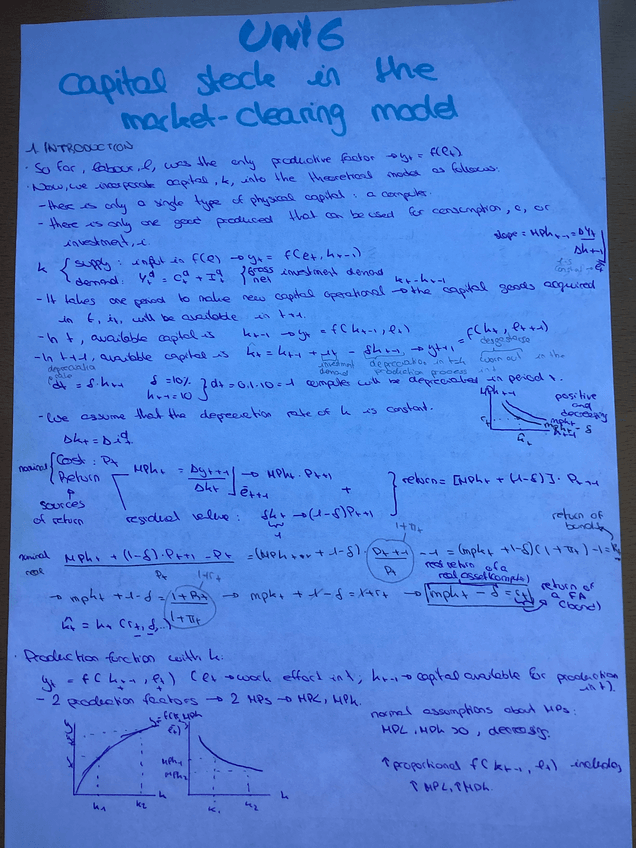 UNIT 6
Capital stock in the
market-clearing model
1. INTRODUCTION
· So far, labour, l, was the only productive factor → yt = f(lt)
· Now, we incorporate capital, k, into the theoretical model as follows:
- there is only a single type of physical capital: a computer.
- there is only one good produced that can be used for consumption, c, or
investment, i.
slope = MPkt-1 = Δyt / Δkt-1
k { supply: input in f(l) → yt = f(lt, kt-1)
demand: Ytd = Ctd + Itd { gross investment demand
net kt - kt-1
- It takes one period to make new capital operational → the capital goods acquired
in t, it, will be available in t+1.
- In t, available capital is kt-1 → yt = f(kt-1, lt)
- In t+1, available capital is kt = kt-1 + - δkt-1 → yt+1 = f(kt, lt+1)
depreciation rate
investment demand
depreciation in
production process
worn out in the
dt = δ·kt-1 δ = 10% kt-1 = 10 } dt = 0.1·10 = 1 computer will be depreciated in period t.
- We assume that the depreciation rate of k is constant.
Δkt = Δitd
MPkt-1
positive
and
decreasing
mpkt
mpkt - δ
rt
k̂t
nominal { Cost: Pt
Return
sources
of return
MPkt = Δyt+1 / Δkt ] l̄t+1 → MPkt · Pt+1
+
residual value: δkt → (1-δ)Pt+1
} return = [MPkt + (1-δ)] · Pt+1
return of
bonds
1+πt
nominal MPkt + (1-δ)·Pt+1 - Pt / Pt = (MPkt + 1-δ) · Pt+1 / Pt - 1 = (mpkt + 1-δ)(1+πt) - 1 = Rt
real
real return of a
real asset (computer)
1+rt
→ mpkt + 1-δ = 1+Rt / 1+πt → mpkt + 1-δ = 1+rt → mpkt - δ = rt
return of
a FA
(bond)
k̂t = kt (rt, δ, ...)
· Production function with k:
yt = f(kt-1, lt) (lt → work effort in t, kt-1 → capital available for production
in t)
- 2 production factors → 2 MPs → MPL, MPk.
normal assumptions about MPs:
MPL, MPk >0, decreasing.
MPk1
MPk2
k1 k2 k
k1 k2 k
↑ proportional f(kt-1, lt) includes
↑MPL, ↑MPk.